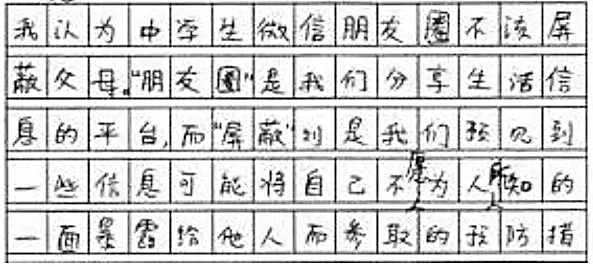 我认为中学生微信朋友圈不该屏
蔽父母。“朋友圈”是我们分享生活信
息的平台,而“屏蔽”则是我们预见到
一些信息可能将自己不愿为人所知的
一面暴露给他人而参取的预防措